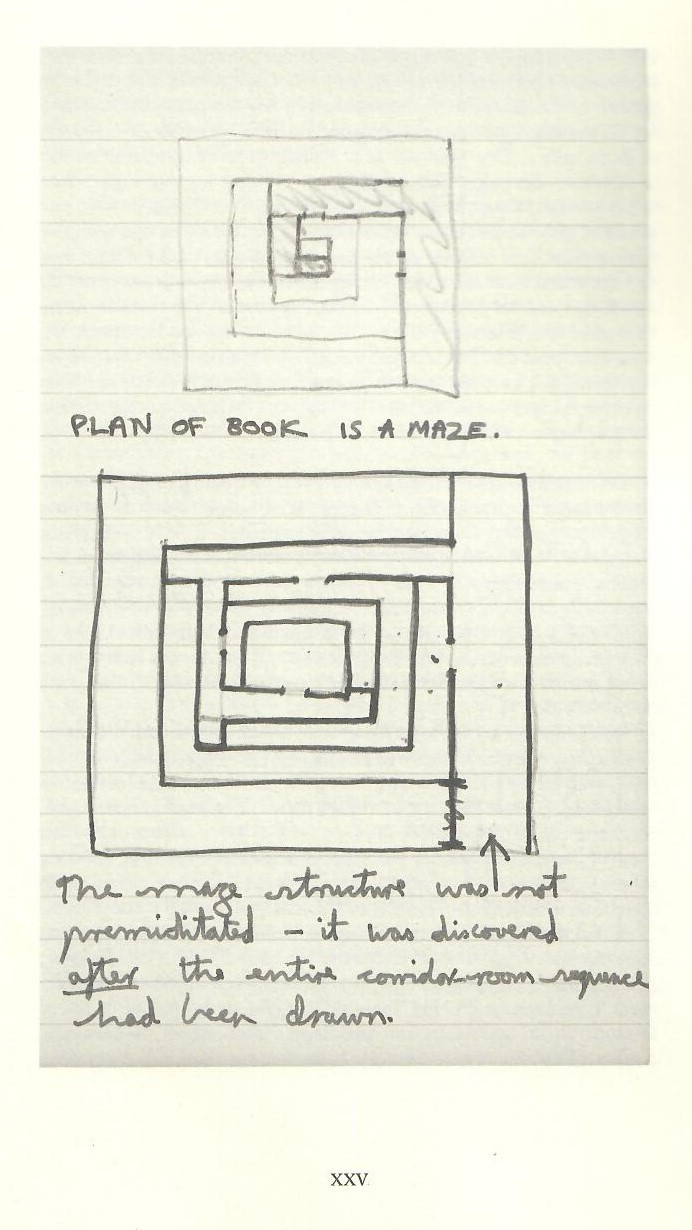 PLAN OF BOOK IS A MAZE.
The maze structure was not
premiditated – it was discovered
after the entire corridor-room-sequence
had been drawn.
XXV